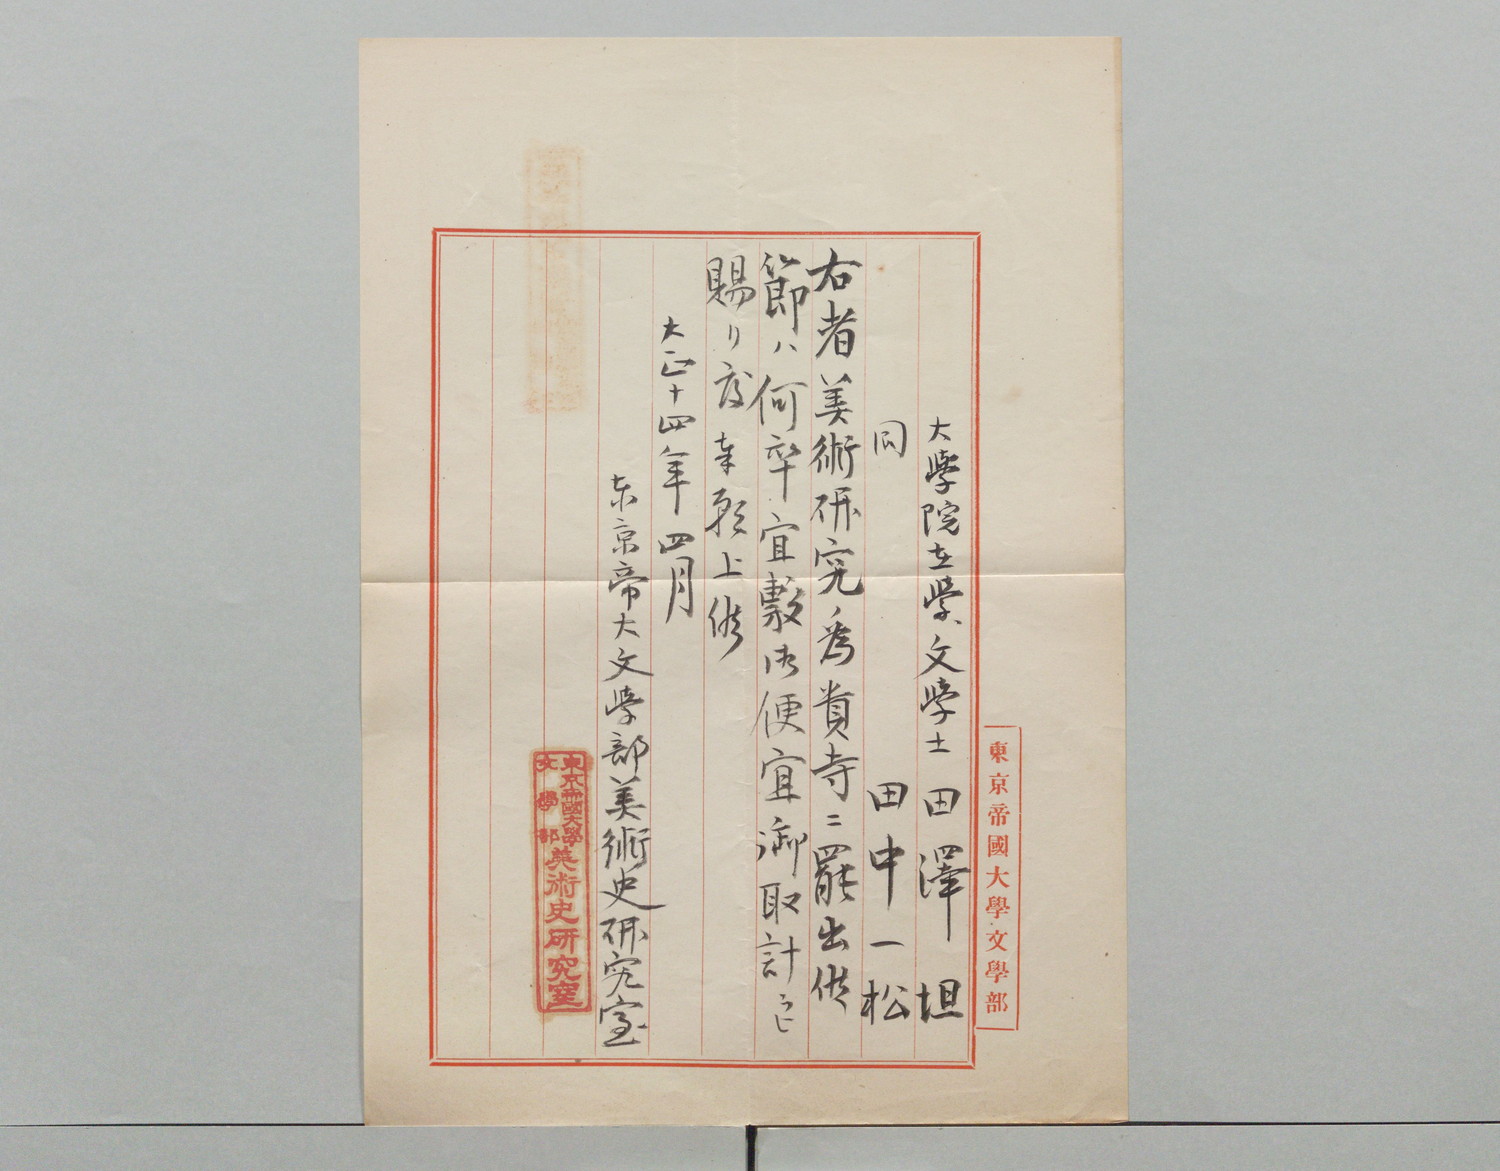 大學院在學、文學士 田澤坦
同 田中一松
右者美術研究ノ為貴寺ニ罷出候
節ハ何卒宜敷御便宜御取計ヒ
賜リ度奉願上候
大正十四年四月
東京帝大文學部美術史研究室
東京帝國大學
文學部
美術史研究室
東京帝國大學文學部